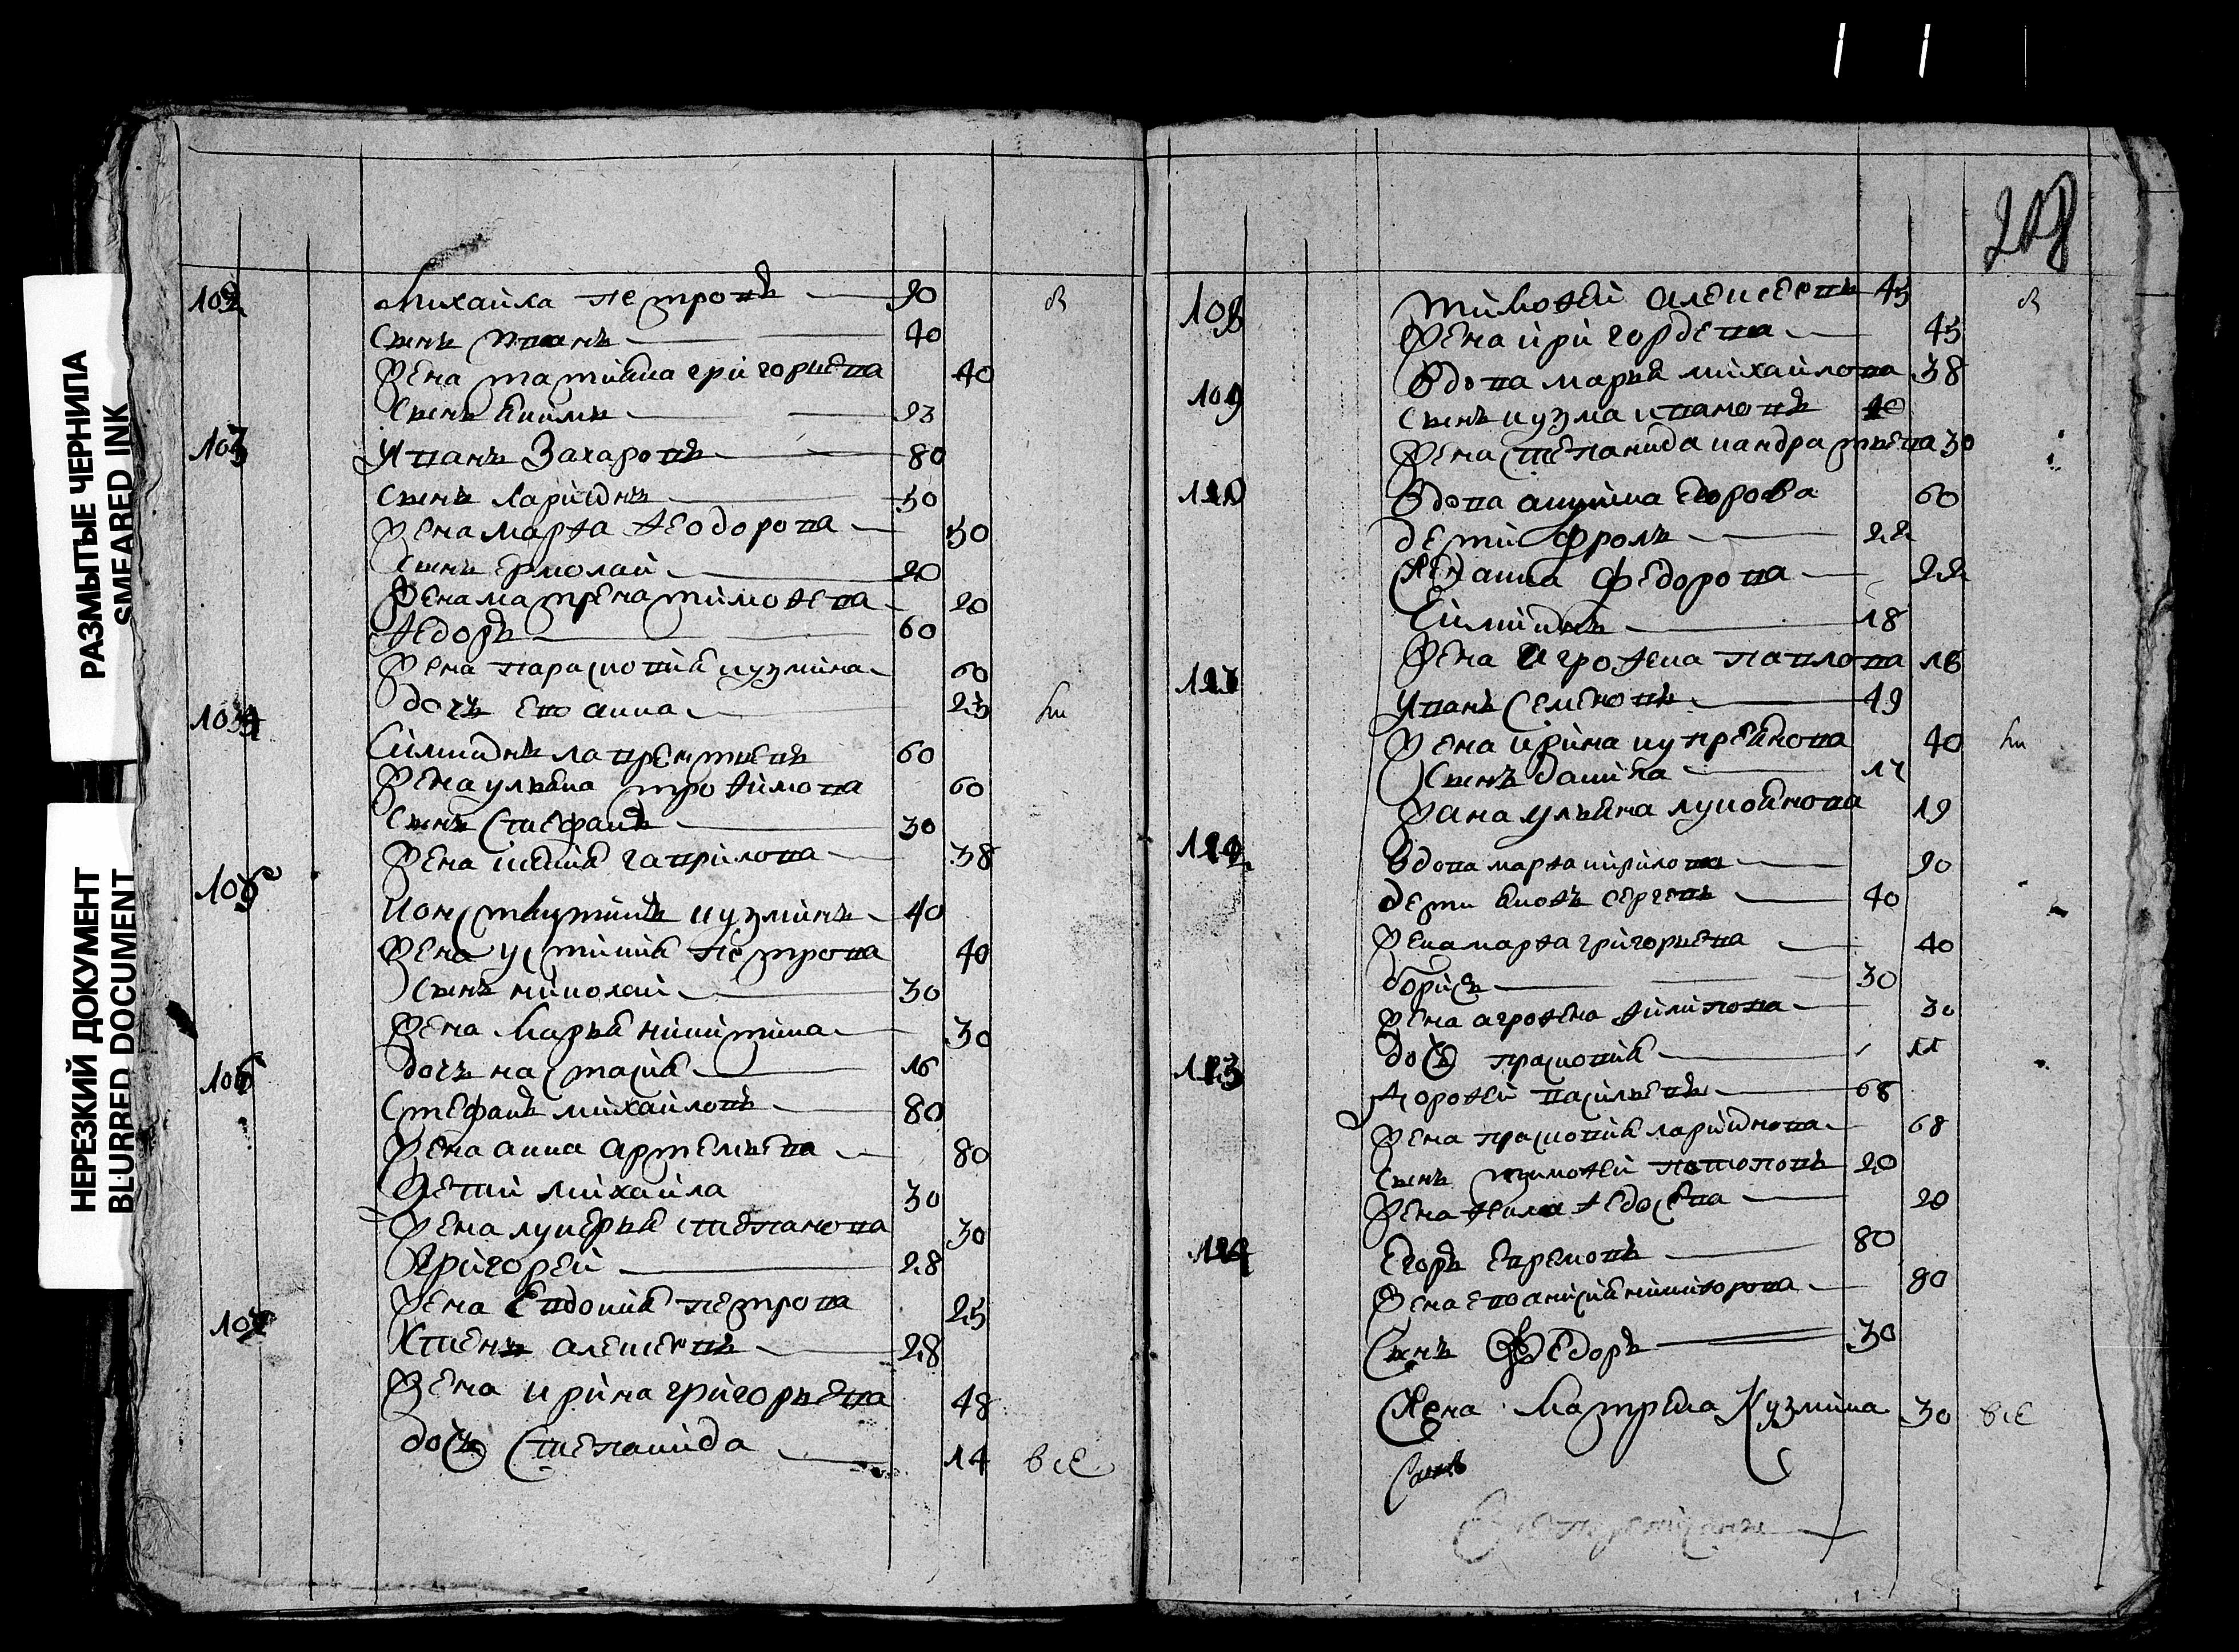 РАЗМЫТЫЕ ЧЕРНИЛА
SMEARED INK
НЕРЕЗКИЙ ДОКУМЕНТ
BLURRED DOCUMENT
102 Михайла петровъ 90
сынъ иванъ 40
жена татияна григорьева 40
сынъ екимъ 23
103 иванъ Захаровъ 80
сынъ ларионъ 50
жена марѳа ѳеодорова 50
сынъ ермолай 20
жена матрена тимоѳева 20
ѳедоръ 60
жена парасковия кузмина 60
дочь 23
симионъ лаврентьевъ 60
жена ульяна троѳимова 60
сынъ стефанъ 30
жена гаврилова 38
105 констянтинъ кузминъ 40
жена устиния петрова 40
сынъ николай 30
жена марья никитина 30
дочь настасия 16
106 стефанъ михайловъ 80
жена анна артемьева 80
дети михайла 30
жена лукерья степанова 30
григорей 28
жена Евдокия петрова 25
107 алексеевъ 28
жена ирина григорьева 48
дочь степанида 14 все
208
108 тимоѳей алексеевъ 45
жена гордева 45
109 вдова марья михайлова 38
сынъ кузма ивановъ
жена степанида кандратьева 30
вдова акулина Егорова 60
дети фролъ 22
жена анна федорова 22
симионъ 18
жена агроѳена павлова 18
иванъ семеновъ 49
жена ирина куприянова 40
сынъ данила 17
жана ульяна лукоянова 19
вдова марѳа кирилова 90
дети яковъ сергевъ 40
жена марѳа григорьева 40
борисъ 30
жена агроѳена ѳилипова 30
дочь прасковия 11
113 дороѳей васильевъ 68
жена прасковия ларионова 68
сынъ тимоѳей 20
жена ѳекла ѳедосева 20
Егоръ Еѳремовъ 80
жена никиѳорова 80
сынъ Федоръ 30
жена Матрена Кузмина 30 все